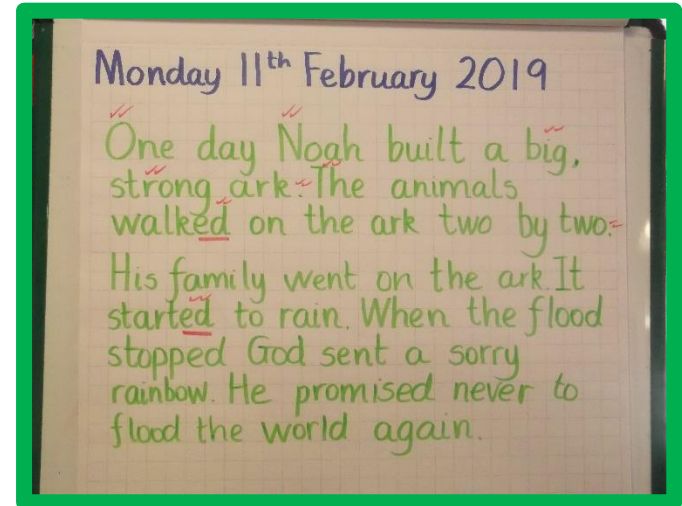 Monday 11th February 2019
One day Noah built a big,
strong ark. The animals
walked on the ark two by two.
His family went on the ark. It
started to rain. When the flood
stopped God sent a sorry
rainbow. He promised never to
flood the world again.